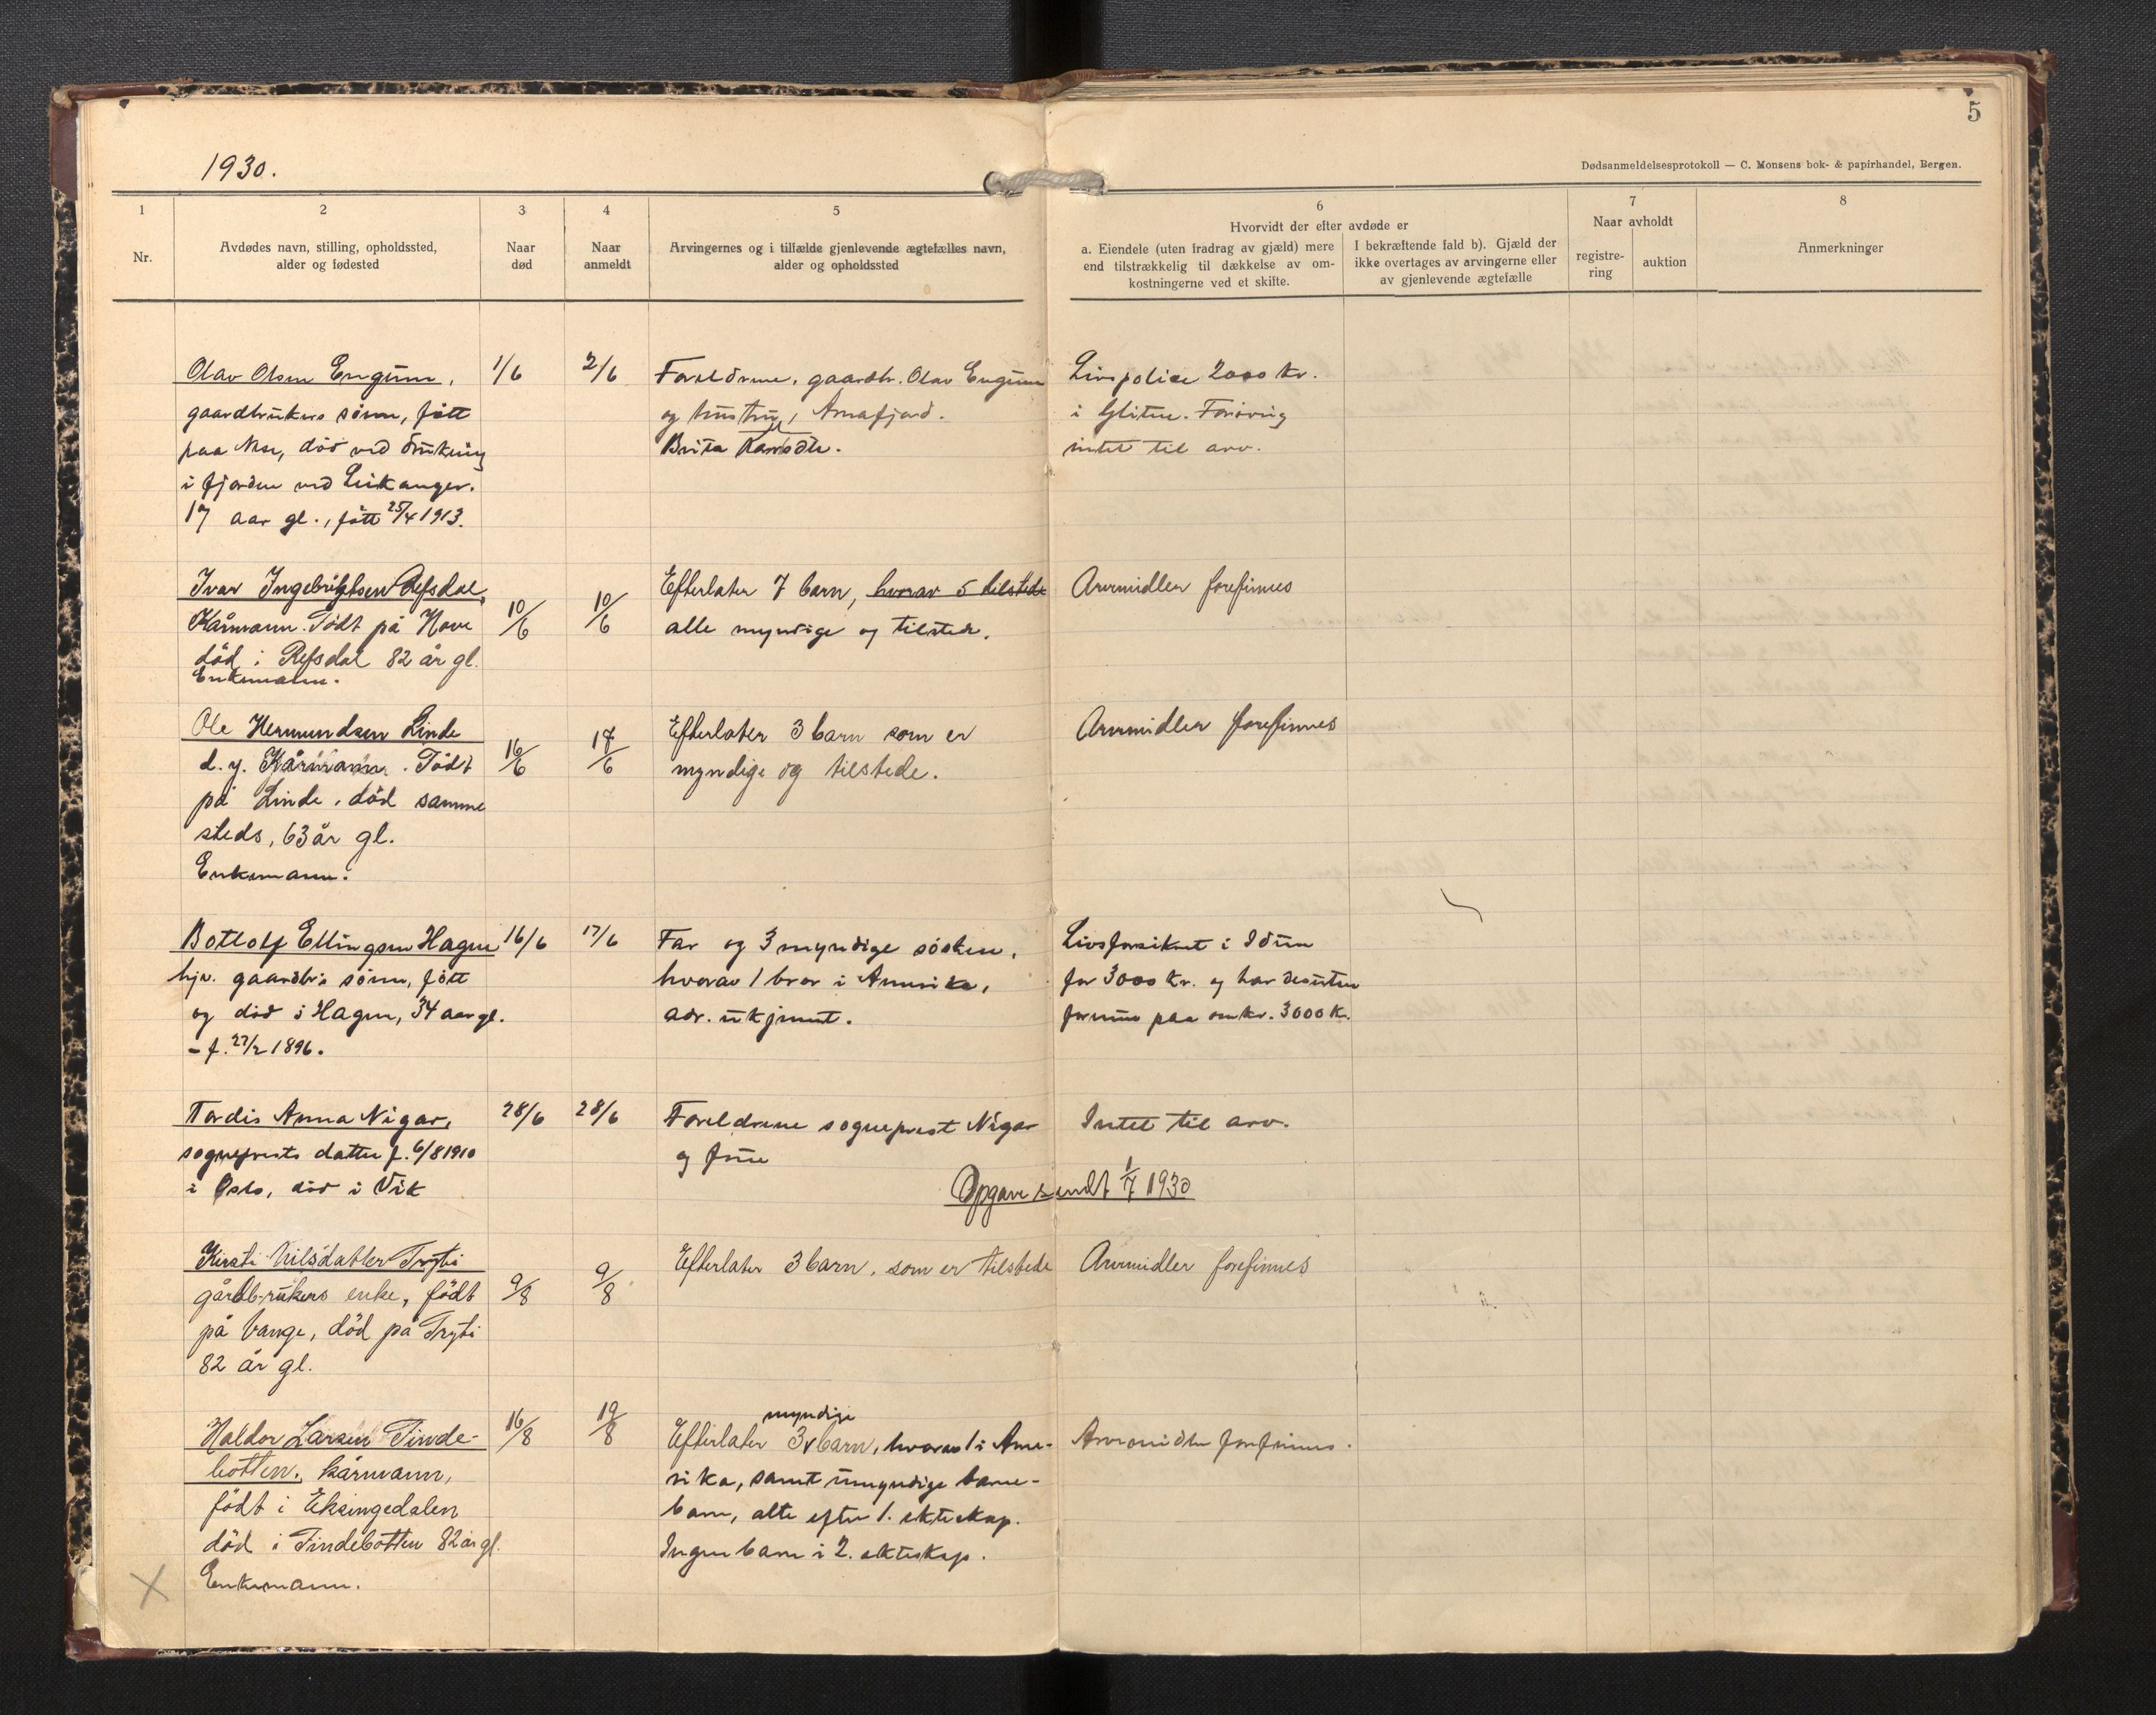 5
1930.
Dødsanmeldelsesprotokoll — C. Monsens bok- & papirhandel, Bergen.
1
2
3
4
5
6
7
8
Nr.
Avdødes navn, stilling, opholdssted,
alder og fødested
Naar
død
Naar
anmeldt
Arvingernes og i tilfælde gjenlevende ægtefælles navn,
alder og opholdssted
Hvorvidt der efter avdøde er
a. Eiendele (uten fradrag av gjæld) mere
end tilstrækkelig til dækkelse av om-
kostningerne ved et skifte.
I bekræftende fald b). Gjæld der
ikke overtages av arvingerne eller
av gjenlevende ægtefælle
Naar avholdt
registre-
ring
auktion
Anmerkninger
Olav Olsen Engum,
gaardbrukers sønn, født
paa Nese, død ved drukning
i fjorden ved Leikanger.
17 aar gl., født 25/4 1913.
1/6
2/6
Foreldrene, gaardbr. Olav Engum
og hustru, Arnafjord.
Brita
Livspolice 2000 kr.
i Glitne. Forøvrig
intet til arv.
Ivar Ingebrigtsen Refsdal,
Kårmann. Født på Hove
död i Refsdal 82 år gl.
Enkemann.
10/6
10/6
Efterlater 7 barn, hvorav 5 tilstede
alle myndige og tilstede.
Arvemidler forefinnes
Ole Hermundsen Linde
d.y. Kårmann. Födt
på Linde, död samme
steds, 63 år gl.
Enkemann.
16/6
17/6
Efterlater 3 barn som er
myndige og tilstede.
Arvemidler forefinnes
Botlolf Ellingsen Hagen
hjv. gaardbr.s sønn, født
og død i Hagen, 34 aar gl.
- f. 27/2 1896.
16/6
17/6
Far og 3 myndige søsken,
hvorav 1 bror i Amerika,
adr. ukjennt.
Livsforsikret i Idun
for 3000 kr. og har desuten
formue paa omkr. 3000 K.
Tordis Anna Nigar,
sogneprests datter f. 6/8 1910
i Oslo, død i Vik
28/6
28/6
Foreldrene sogneprest Nigar
og frue
Intet til arv.
Opgave sendt 1/7 1930
Kirsti Nilsdatter Tryti
gårdbrukers enke, födt
på Vange, död på Tryti
82 år gl.
9/8
9/8
Efterlater 3 barn, som er tilstede
Arvemidler forefinnes
Haldor Larsen Tinde-
botten, kårmann,
födt i Eksingedalen
död i Tindebotten 82 år gl.
Enkemann.
16/8
19/8
myndige
Efterlater 3 barn, hvorav 1 i Ame-
rika, samt umyndige barne-
barn, alle efter 1. ekteskap.
Ingen barn i 2. ekteskap.
Arvemidler forefinnes.
X